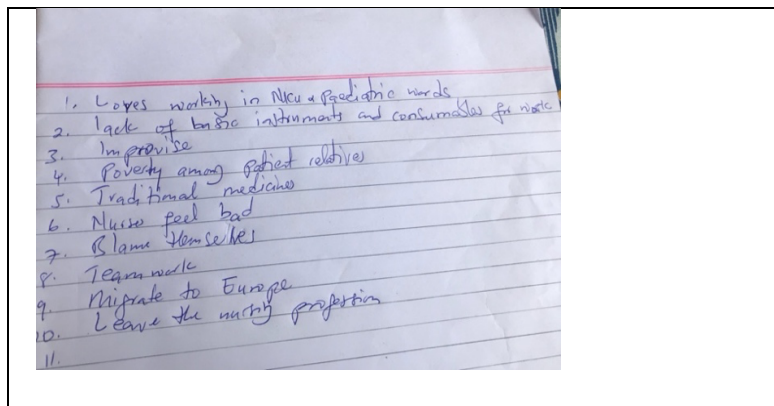 1. Loves working in NICU & Paediatric wards
2. lack of basic instruments and consumables for work
3. Improvise
4. Poverty among patient relatives
5. Traditional medicines
6. Nurses feel bad
7. Blame themselves
8. Teamwork
9. Migrate to Europe
10. Leave the nursing profession
11.